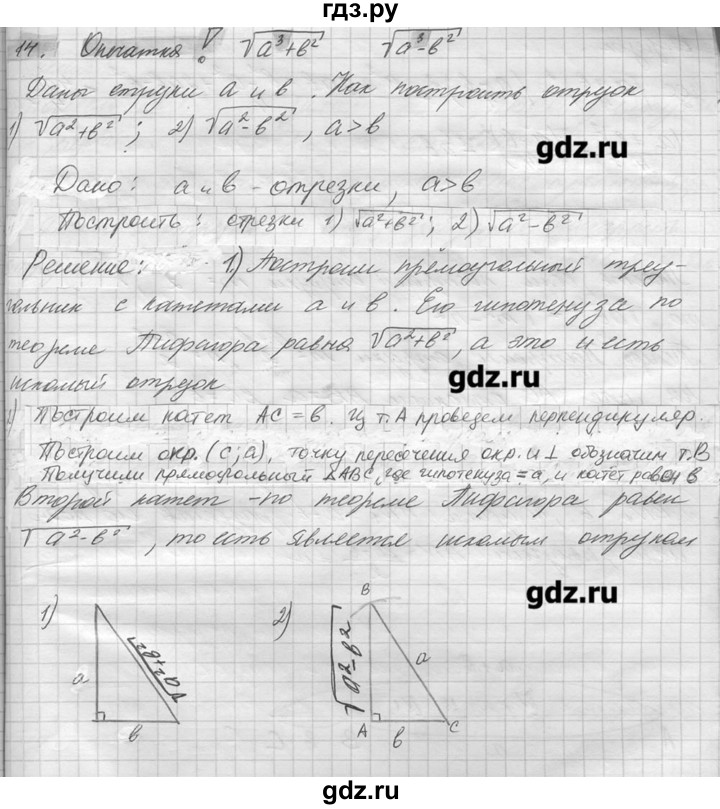 гдз.ру
14. Опечатка! √a³+b² √a³-b²
Даны отрезки a и b. Как построить отрезок
1) √a²+b²; 2) √a²-b², a>b
gdz.ru
Дано: a и b - отрезки, a>b
Построить: отрезки 1) √a²+b²; 2) √a²-b²
Решение: 1.) Построим прямоугольный треу-
гольник с катетами a и b. Его гипотенуза по
теореме Пифагора равна √a²+b², а это и есть
искомый отрезок
gdz.ru
2) Построим катет AC = b. Из т. A проведем перпендикуляр.
Построим окр. (c; a), точку пересечения окр. и ⊥ обозначим т. B
Получили прямоугольный △ABC, где гипотенуза = a, и катет равен b
Второй катет - по теореме Пифагора равен
√a²-b², то есть является искомым отрезком
gdz.ru
1) a b √a²+b²
2) B √a²-b² a A b C
gdz.ru